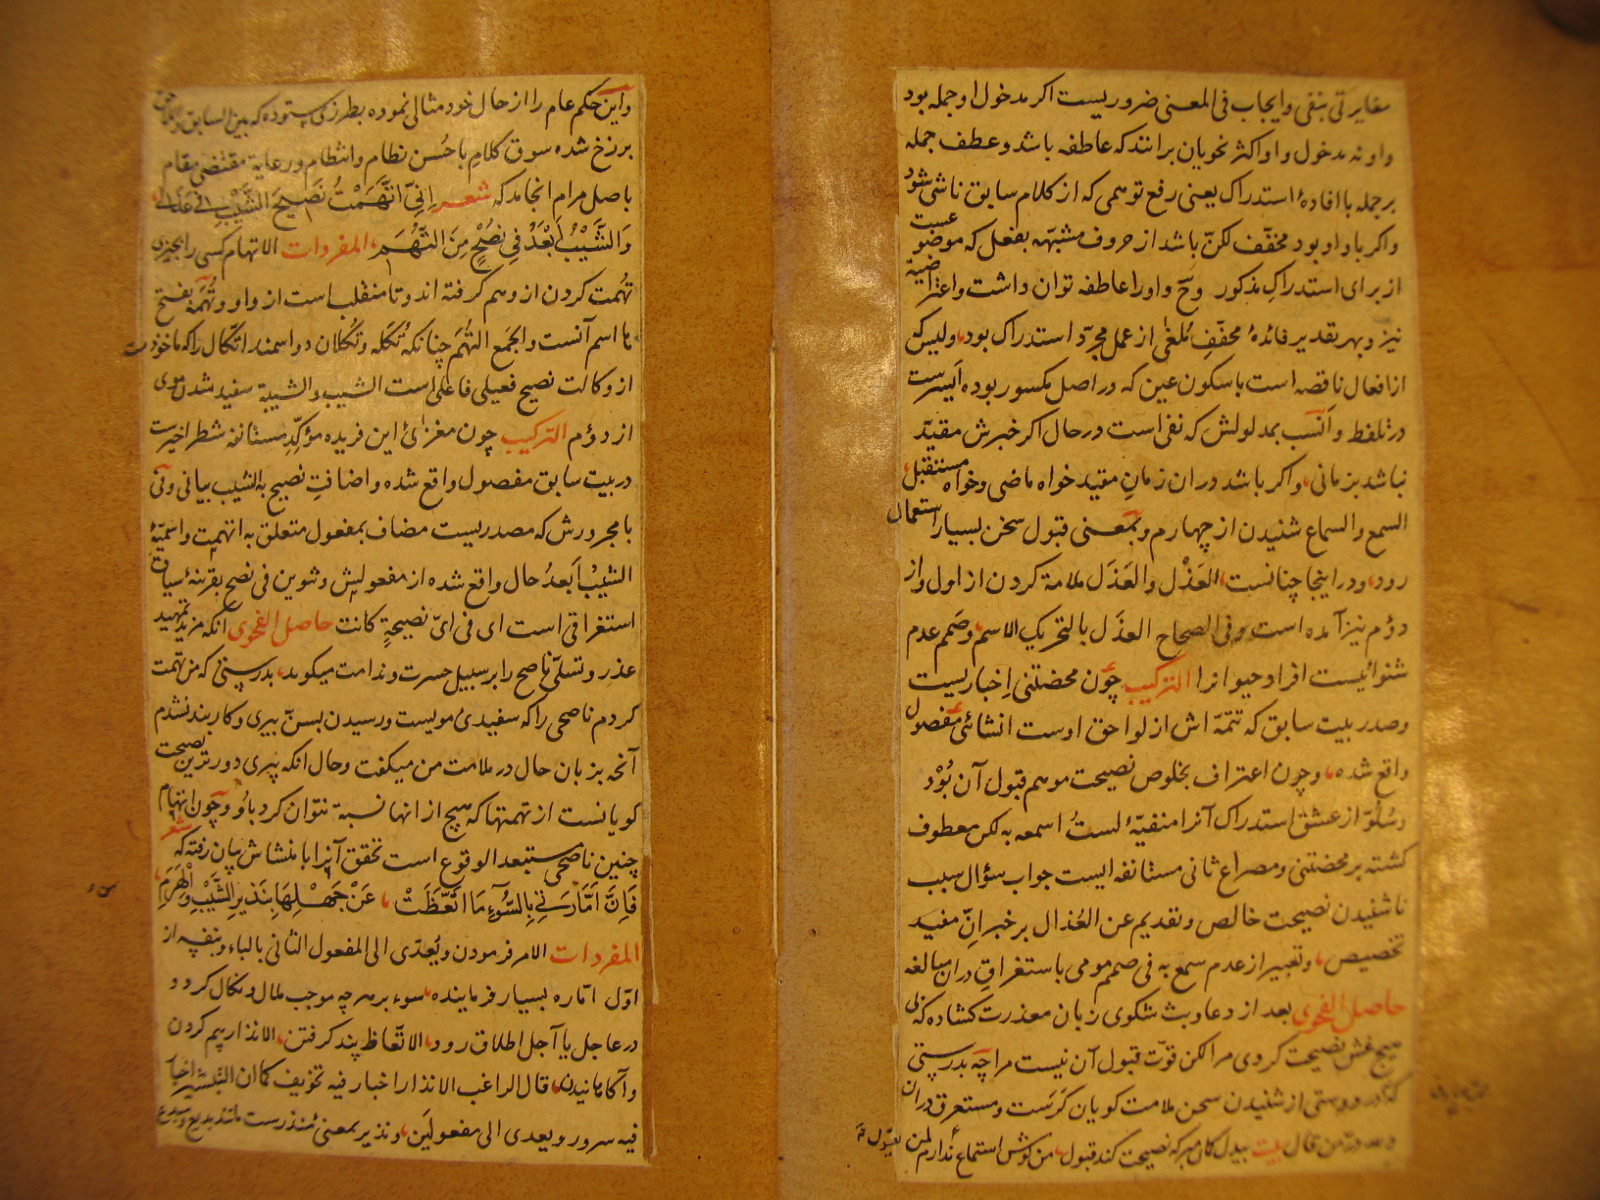 مغایرتی بنفی وایجاب فی المعنی ضروریست اکر مدخول او جمله بود
واو نه مدخول واو اکثر نحویان برانند که عاطفه باشد وعطف جمله
بر جمله با افادهٔ استدراک یعنی رفع توهمی که از کلام سابق ناشی شود
واکر باواو بود مخفّف لکنّ باشد از حروف مشبّهه بفعل که موضوعست
از برای استدراک مذکور وحَ واورا عاطفه توان داشت واعتراضیه
نیز وبهر تقدیر فائدهٔ مخفّفِ مُلغیٰ از عمل مجرّد استدراک بود، ولیس که
از افعال ناقصه است باسکون عین که در اصل مکسور بوده أیسرست
در تلفظ وأنسب بمدلولش که نفی است در حال اکر خبرش مقیّد
نباشد بزمانی، واکر باشد دران زمانِ مقید خواه ماضی وخواه مستقبل،
السمع والسماع شنیدن از چهارم وبمعنی قبول سخن بسیار استعمال
رود، ودر اینجا چنانست، العَذْل والعَذَل ملامة کردن از اول واز
دؤم نیز آمده است وفی الصحاح العذَل بالتحریک الاسم، وصَمم عدم
شنوائیست افراد حیوانرا الترکیب چون محضتنی اِخباریست
وصدر بیت سابق که تتمّه اش از لواحق اوست انشائی مفصول
واقع شده، وچون اعتراف بخلوص نصیحت موهم قبول آن بُوْد
وسُلوّ از عشق استدراک آنرا منفیّهٔ لستُ اسمعه به لکن معطوف
کشته بر محضتنی ومصراع ثانی مستانفه ایست جواب سؤال سبب
ناشنیدن نصیحت خالص وتقدیم عن العُذال بر خبر انّ مفید
تخصیص، وتعبیر از عدم سمع به فی صمم مومی باستغراقِ دران مبالغه
حاصل الفحوی بعد از دعا وبث شکوی زبان معذرت کشاده که
هیچ غش نصیحت کردی مرا لکن قوّت قبول آن نیست مرا چه بدرستی
که در دوستی از شنیدن سخن ملامت کویان کَرَست ومستغرق دران
قال بیت بیدل کمان مبر که نصیحت کند قبول، من کوش استماع ندارم لمن یقول
واین حکم عام را از حال خود مثالی نموده بطرزی ستوده که بین السابق واللاحق
برزخ شده سوق کلام باحُسن نظام وانتظام ورعایةِ مقتضی مقام
باصل مرام انجامد که شعر اِنِّی اتَّهَمْتُ نَصِیحَ الشَّیْبِ فِی عَذَلٍ،
وَالشَّیْبُ أَبْعَدُ فِی نُصْحٍ مِنَ التُّهَمِ، المفردات الاتهام کسی را بچیزی
تهمت کردن از وهم کرفته اند وتا منقلب است از واو وتُهَمَة بفتح
ها اسم آنست والجمع التُّهَم چنانکه تُکَله وتُکلان دو اسمند اتّکال را که ماخوذست
از وکالت نصیح فعیلی فاعلی است الشیب والشیبة سفید شدن موی
از دؤم الترکیب چون مغزایٔ این فریده مؤکّدِ مستانفهٔ شطر اخیرست
در بیت سابق مفصول واقع شده واضافتِ نصیح به الشیب بیانی وفی
با مجرورش که مصدریست مضاف بمفعول متعلق به اتهمت واسمیّهٔ
الشیبُ ابعدُ حال واقع شده از مفعولش وتنوین فی نصح بقرینهٔ سیاق
استغراقی است ای فی ایّ نصیحةٍ کانت حاصل الفحوی آنکه مزید تمهید
عذر وتسلّی ناصح را بر سبیل حسرت وندامت میکوید، بدرستی که من تهمت
کردم ناصحی را که سفیدیٔ مویست ورسیدن بسنّ پیری وکار بند نشدم
آنچه بزبان حال در ملامت من میکفت وحال آنکه پیری دورترین نصیحت
کویانست از تهمتها که هیچ از انها نسبة نتوان کرد باو وچون اتهام
چنین ناصحی مستبعد الوقوع است تحقق آنرا با منشاش بیان رفته که شعر
فَاِنَّ اَمَّارَتِی بِالسُّوٓءِ مَا اتَّعَظَتْ، عَنْ جَهْلِهَا بِنَذِیرِ الشَّیْبِ وَالْهَرَمِ،
المفردات الامر فرمودن ویُعدّی الی المفعول الثانی بالباء وبنفسه از
اوّل امّاره بسیار فرماینده، سوء بر هر چه موجب ملال ونکال کردد
در عاجل یا آجل اطلاق رود، الاتّعاظ پند کرفتن، الانذار بیم کردن
وآکاهانیدن، قال الراغب الانذار اخبار فیه تخویف کما ان التبشیر اخبار
فیه سرور ویعدی الی مفعولَین، ونذیر بمعنیٔ منذرست مانند بدیع ومبدع